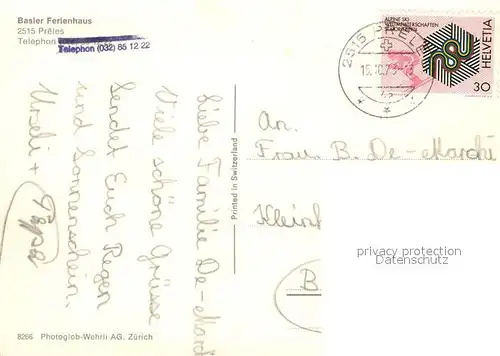 Basler Ferienhaus
2515 Prêles
Telephon
Telephon (032) 85 12 22
Liebe Familie De-March
Viele schöne Grüsse
Sendet Euch Regen
und Sonnenschein.
Urseli +
Pappa
8266 Photoglob-Wehrli AG. Zürich
Printed in Switzerland
2515 PRÊLES
ALPINE SKI
WELTMEISTERSCHAFTEN
HELVETIA
30
An.
Frau. B. De-Marchi
B
privacy protection
Datenschutz